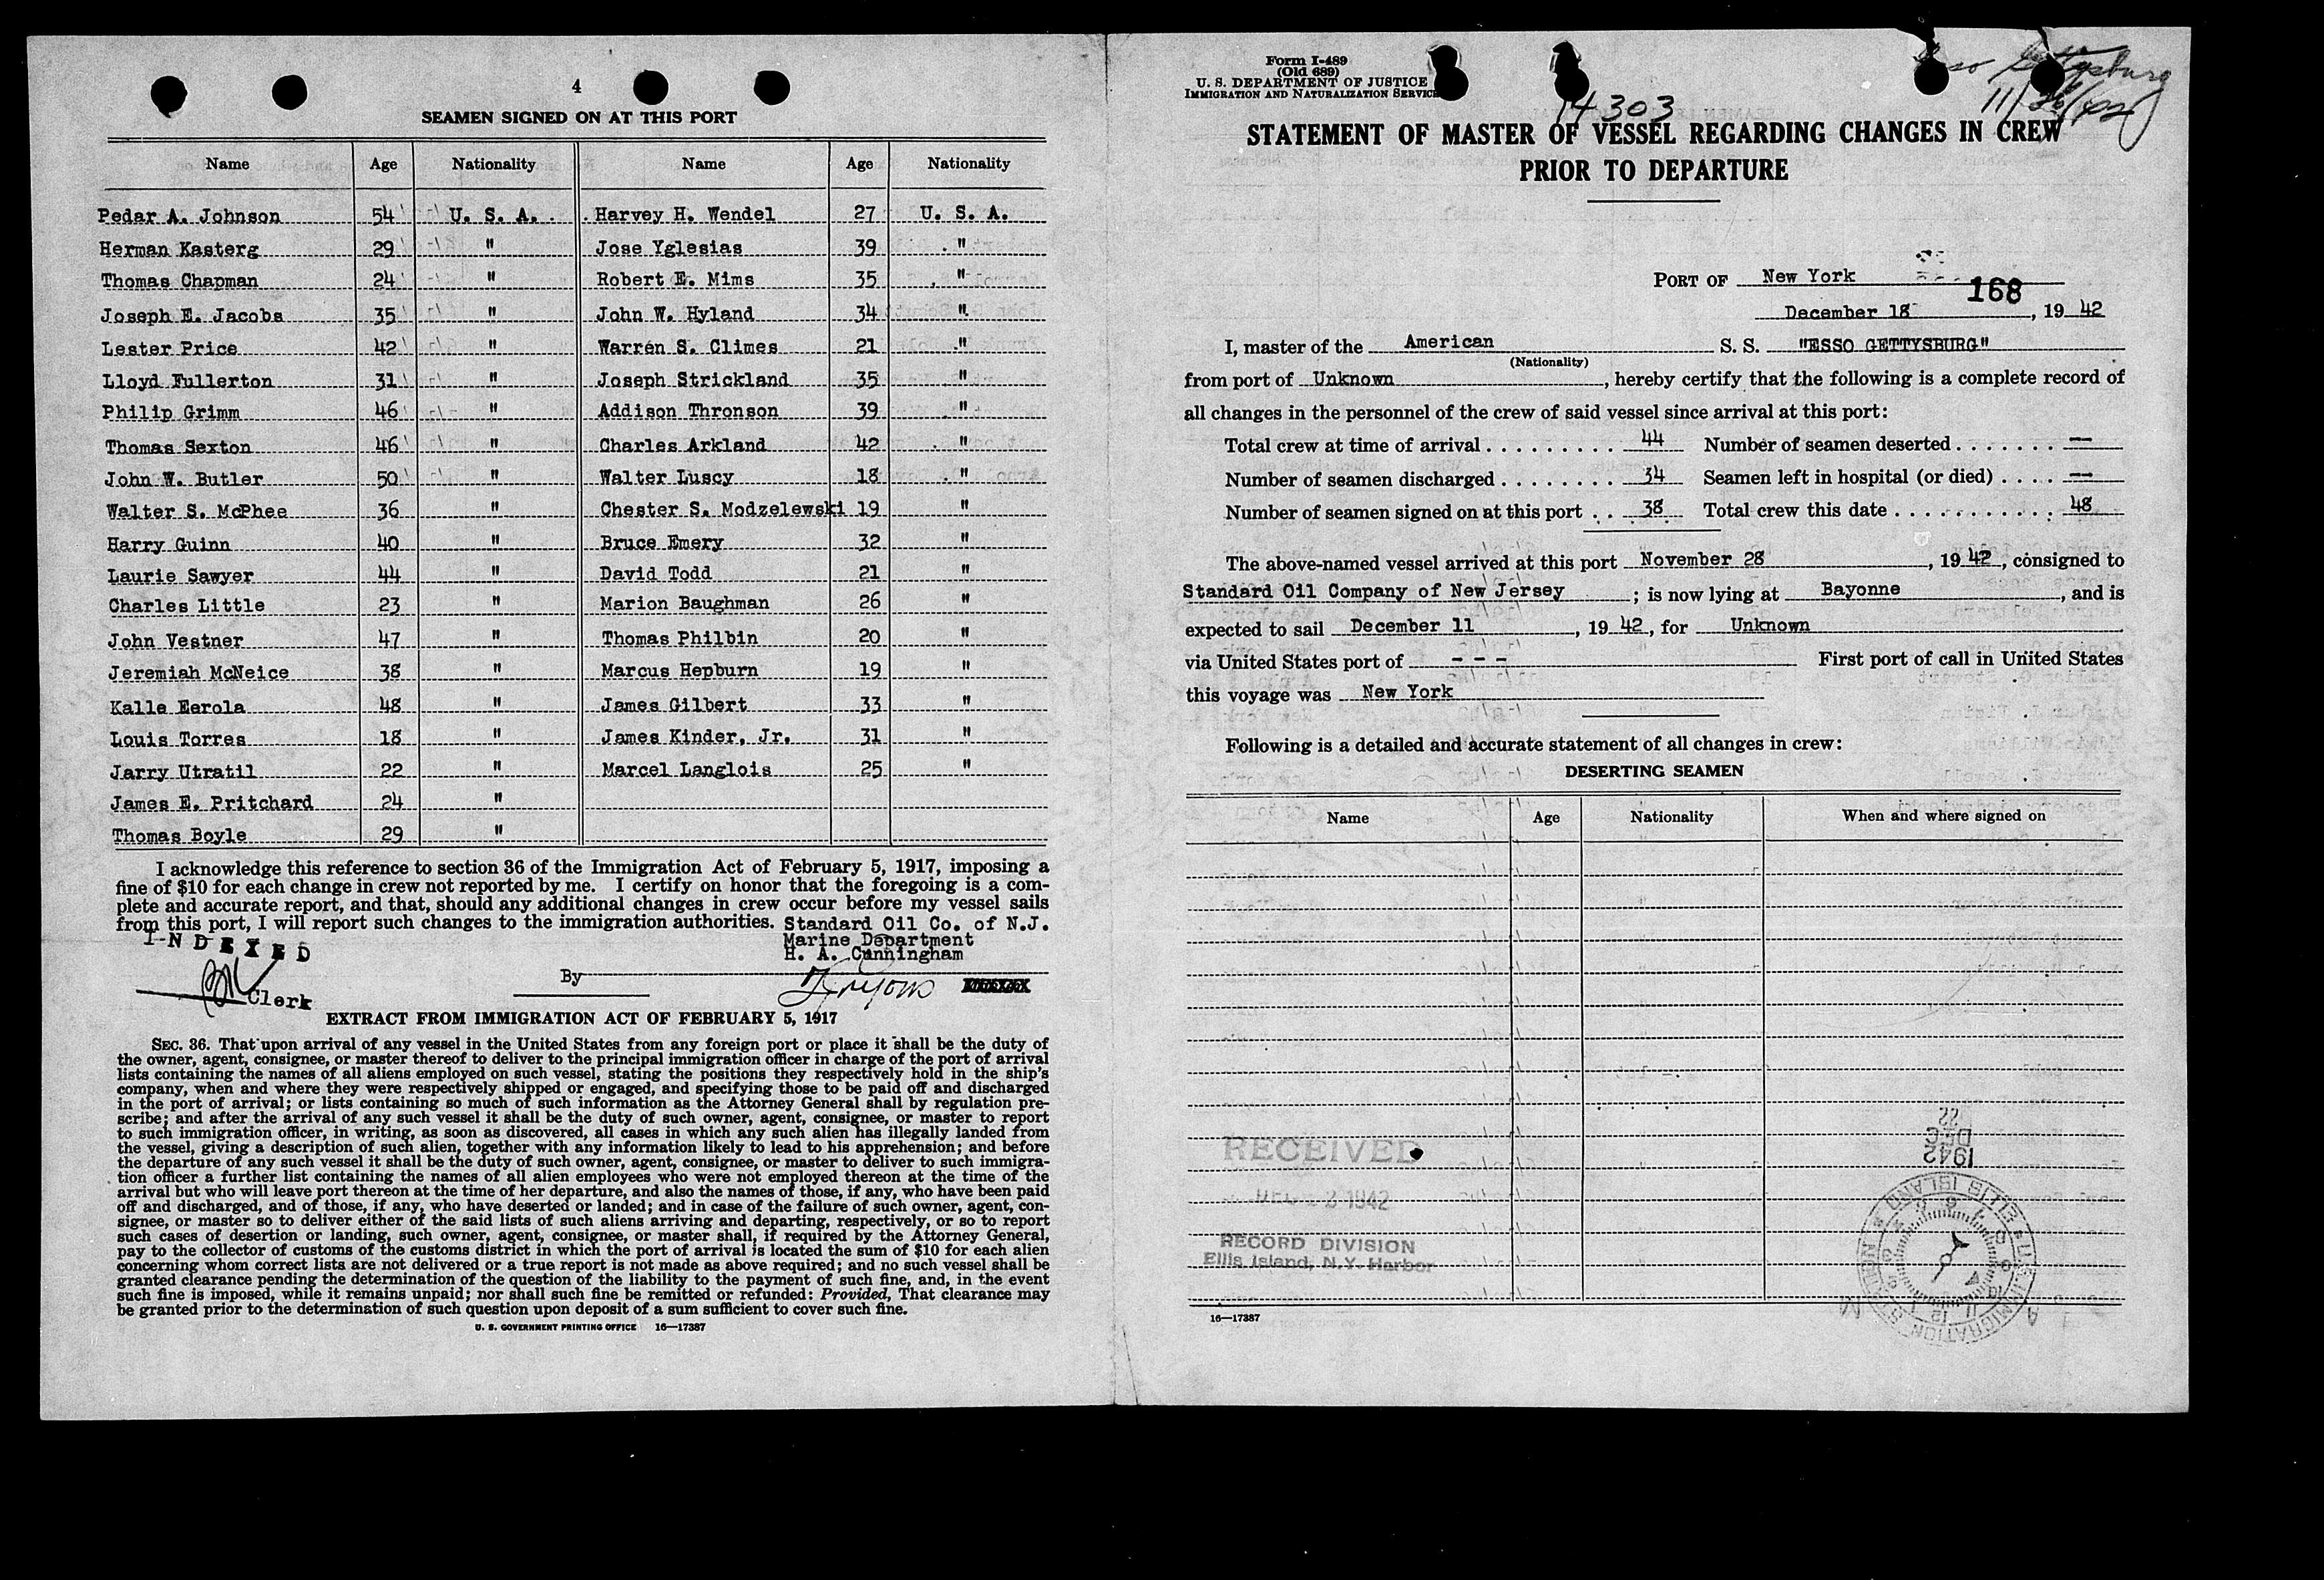 4
SEAMEN SIGNED ON AT THIS PORT
Name Age Nationality Name Age Nationality
Pedar A. Johnson 54 U. S. A. Harvey H. Wendel 27 U. S. A.
Herman Kasterg 29 " Jose Yglesias 39 "
Thomas Chapman 24 " Robert E. Mims 35 "
Joseph E. Jacobs 35 " John W. Hyland 34 "
Lester Price 42 " Warren S. Climes 21 "
Lloyd Fullerton 31 " Joseph Strickland 35 "
Philip Grimm 46 " Addison Thronson 39 "
Thomas Sexton 46 " Charles Arkland 42 "
John W. Butler 50 " Walter Luscy 18 "
Walter S. McPhee 36 " Chester S. Modzelewski 19 "
Harry Guinn 40 " Bruce Emery 32 "
Laurie Sawyer 44 " David Todd 21 "
Charles Little 23 " Marion Baughman 26 "
John Vestner 47 " Thomas Philbin 20 "
Jeremiah McNeice 38 " Marcus Hepburn 19 "
Kalle Eerola 48 " James Gilbert 33 "
Louis Torres 18 " James Kinder, Jr. 31 "
Jarry Utratil 22 " Marcel Langlois 25 "
James E. Pritchard 24 "
Thomas Boyle 29 "
I acknowledge this reference to section 36 of the Immigration Act of February 5, 1917, imposing a
fine of $10 for each change in crew not reported by me. I certify on honor that the foregoing is a com-
plete and accurate report, and that, should any additional changes in crew occur before my vessel sails
from this port, I will report such changes to the immigration authorities. Standard Oil Co. of N.J.
Marine Department
H. A. Cunningham
INDEXED
By
Clerk
EXTRACT FROM IMMIGRATION ACT OF FEBRUARY 5, 1917
SEC. 36. That upon arrival of any vessel in the United States from any foreign port or place it shall be the duty of
the owner, agent, consignee, or master thereof to deliver to the principal immigration officer in charge of the port of arrival
lists containing the names of all aliens employed on such vessel, stating the positions they respectively hold in the ship's
company, when and where they were respectively shipped or engaged, and specifying those to be paid off and discharged
in the port of arrival; or lists containing so much of such information as the Attorney General shall by regulation pre-
scribe; and after the arrival of any such vessel it shall be the duty of such owner, agent, consignee, or master to report
to such immigration officer, in writing, as soon as discovered, all cases in which any such alien has illegally landed from
the vessel, giving a description of such alien, together with any information likely to lead to his apprehension; and before
the departure of any such vessel it shall be the duty of such owner, agent, consignee, or master to deliver to such immigra-
tion officer a further list containing the names of all alien employees who were not employed thereon at the time of the
arrival but who will leave port thereon at the time of her departure, and also the names of those, if any, who have been paid
off and discharged, and of those, if any, who have deserted or landed; and in case of the failure of such owner, agent, con-
signee, or master so to deliver either of the said lists of such aliens arriving and departing, respectively, or so to report
such cases of desertion or landing, such owner, agent, consignee, or master shall, if required by the Attorney General,
pay to the collector of customs of the customs district in which the port of arrival is located the sum of $10 for each alien
concerning whom correct lists are not delivered or a true report is not made as above required; and no such vessel shall be
granted clearance pending the determination of the question of the liability to the payment of such fine, and, in the event
such fine is imposed, while it remains unpaid; nor shall such fine be remitted or refunded: Provided, That clearance may
be granted prior to the determination of such question upon deposit of a sum sufficient to cover such fine.
U. S. GOVERNMENT PRINTING OFFICE 16—17387
Form I-489
(Old 689)
U. S. DEPARTMENT OF JUSTICE
IMMIGRATION AND NATURALIZATION SERVICE
Esso Gettysburg
14303
STATEMENT OF MASTER OF VESSEL REGARDING CHANGES IN CREW
PRIOR TO DEPARTURE
PORT OF New York
168
December 18, 19 42
I, master of the American S. S. "ESSO GETTYSBURG"
(Nationality)
from port of Unknown, hereby certify that the following is a complete record of
all changes in the personnel of the crew of said vessel since arrival at this port:
Total crew at time of arrival . . . . . . . . . 44 Number of seamen deserted . . . . . . . —
Number of seamen discharged . . . . . . . . 34 Seamen left in hospital (or died) . . . . —
Number of seamen signed on at this port . . 38 Total crew this date . . . . . . . . . . . . 48
The above-named vessel arrived at this port November 28, 19 42, consigned to
Standard Oil Company of New Jersey; is now lying at Bayonne, and is
expected to sail December 11, 19 42, for Unknown
via United States port of - - - First port of call in United States
this voyage was New York
Following is a detailed and accurate statement of all changes in crew:
DESERTING SEAMEN
Name Age Nationality When and where signed on
RECEIVED
1942
RECORD DIVISION
Ellis Island, N.Y. Harbor
22
DEC
1942
16—17387